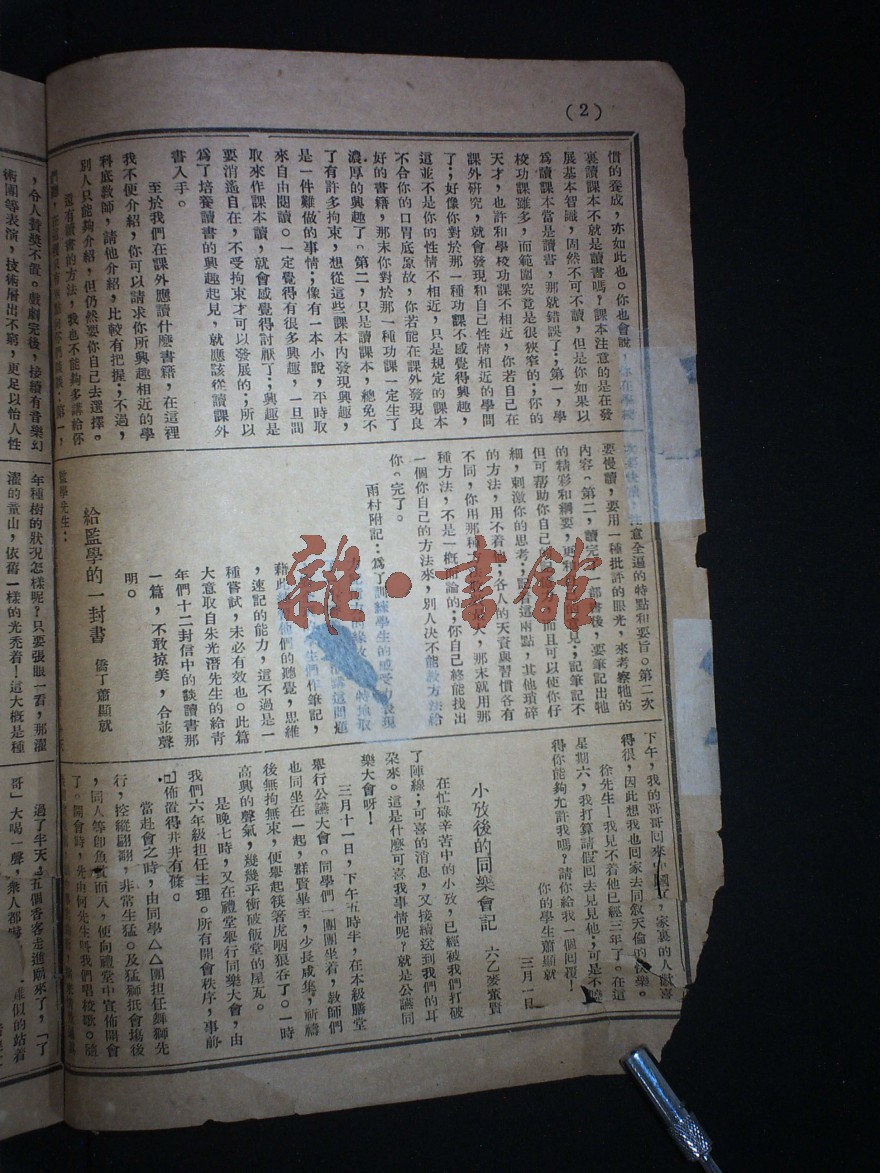 (2)
慣的養成，亦如此也。你也會說，
裏讀課本不就是讀書嗎？課本注意的是在發
展基本智識，固然不可不讀，但是你如果以
為讀課本當是讀書，那就錯誤了；第一，學
校功課雖多，而範圍究竟是很狹窄的；你的
天才，也許和學校功課不相近，你若自己在
課外研究，就會發現和自己性情相近的學問
了；好像你對於那一種功課不感覺得興趣，
這並不是你的性情不相近，只是規定的課本
不合你的口胃底原故，你若能在課外發現良
好的書籍，那末你對於那一種功課一定生了
濃厚的興趣了。第二，只是讀課本，總免不
了有許多拘束，想從這些課本內發現興趣，
是一件難做的事情；像有一本小說，平時取
來自由閱讀。一定覺得有很多興趣，一旦間
取來作課本讀，就會感覺得討厭了；興趣是
要消遙自在，不受拘束才可以發展的；所以
為了培養讀書的興趣起見，就應該從讀課外
書入手。
至於我們在課外應讀什麼書籍，在這裡
我不便介紹，你可以請求你所興趣相近的學
科底教師，請他介紹，比較有把握；不過，
別人只能夠介紹，但仍然要你自己去選擇。
還有讀書的方法，我也不能夠多講給你
第一，
注意全遍的特點和要旨。第二次
要慢讀，要用一種批許的眼光，來考察牠的
內容。第二，讀完一部書後，要筆記出牠
的精彩和綱要，更 見；記筆記不
但可幫助你自己 而且可以使你仔
細，刺激你的思考；記着這兩點，其他瑣碎
的方法，用不着他；各人的天資與習慣各有
不同，你用那種 大，那末就用那
種方法，不是一概而論的；你自己終能找出
一個你自己的方法來，別人決不能教方法給
你。完了。
雨村附記：為了訓練學生的感受力表現
學生們作筆記，
藉此 他們的聽覺，思維
，速記的能力，這不過是一
種嘗試，未必有效也。此篇
大意取自朱光潛先生的給青
年們十二封信中的談讀書那
一篇，不敢掠美，合並聲
明。
給監學的一封書　僑丁蕭顯就
監學先生：
下午，我的哥哥回來 國了，家裏的人歡喜
得很，因此想我也回家去同敘天倫的快樂。
徐先生！我見不着他已經三年了。在這
星期六，我打算請假回去見見他；可是不曉
得你能夠允許我嗎？請你給我一個回覆！
你的學生蕭顯就
三月一日
小攷後的同樂會記　六乙麥董賢
在忙碌辛苦中的小攷，已經被我們打破
了陣線；可喜的消息，又接續送到我們的耳
朶來。這是什麼可喜我事情呢？就是公讌同
樂大會呀！
三月十一日，下午五時半，在本級膳堂
舉行公讌大會。同學們一團團坐着，教師們
也同坐在一起，羣賢畢至，少長咸集，祈禱
後無拘無束，便舉起筷箸虎咽狼吞了。一時
高興的聲氣，幾幾乎衝破飯堂的屋瓦。
是晚七時，又在禮堂舉行同樂大會，由
我們六年級担任主理。所有開會秩序，事前
已佈置得井井有條。
當赴會之時，由同學△△團担任舞獅先
行，控縱翩翩，非常生猛。及猛獅抵會塲後
，同人等卽魚貫而入，便向禮堂中宣佈開會
了。開會時，先由何先生呌我們唱校歌。隨
，令人贊獎不置。戲劇完後，接續有音樂幻
術團等表演，技術層出不窮，更足以怡人性
年種樹的狀况怎樣呢？只要張眼一看，那濯
濯的童山，依舊一樣的光禿着！這大概是種
過了半天，五個香客走進廟來了，「了
哥」大喝一聲，衆人都嚇 似的站着
雜·書館